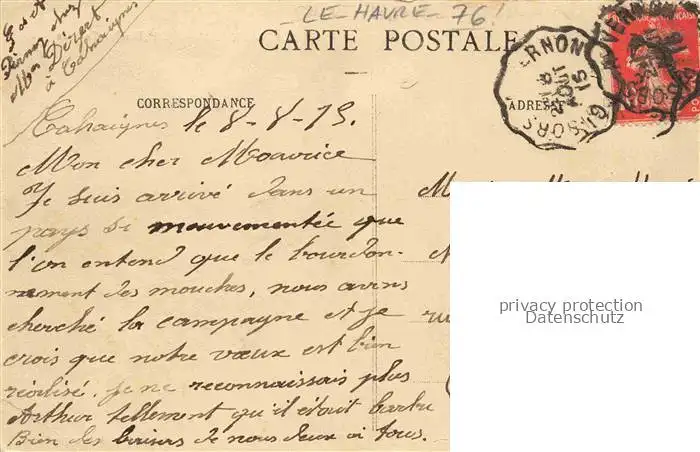 LE-HAVRE-76!
CARTE POSTALE
E et A
Pernot chez
Mon Désert
à Cahaignes
CORRESPONDANCE
ADRESSE
VERNON
GISORS
15
AOUT
Cahaignes le 8-8-15.
Mon cher Maurice
Je suis arrivé dans un
pays si mouvementée que
l'on entend que le bourdon-
nement des mouches, nous avons
cherché la campagne et je
crois que notre vœux est bien
réalisé. je ne reconnaissais plus
Arthur tellement qu'il était barbu
Bien des baisers de nous deux a tous.
privacy protection
Datenschutz